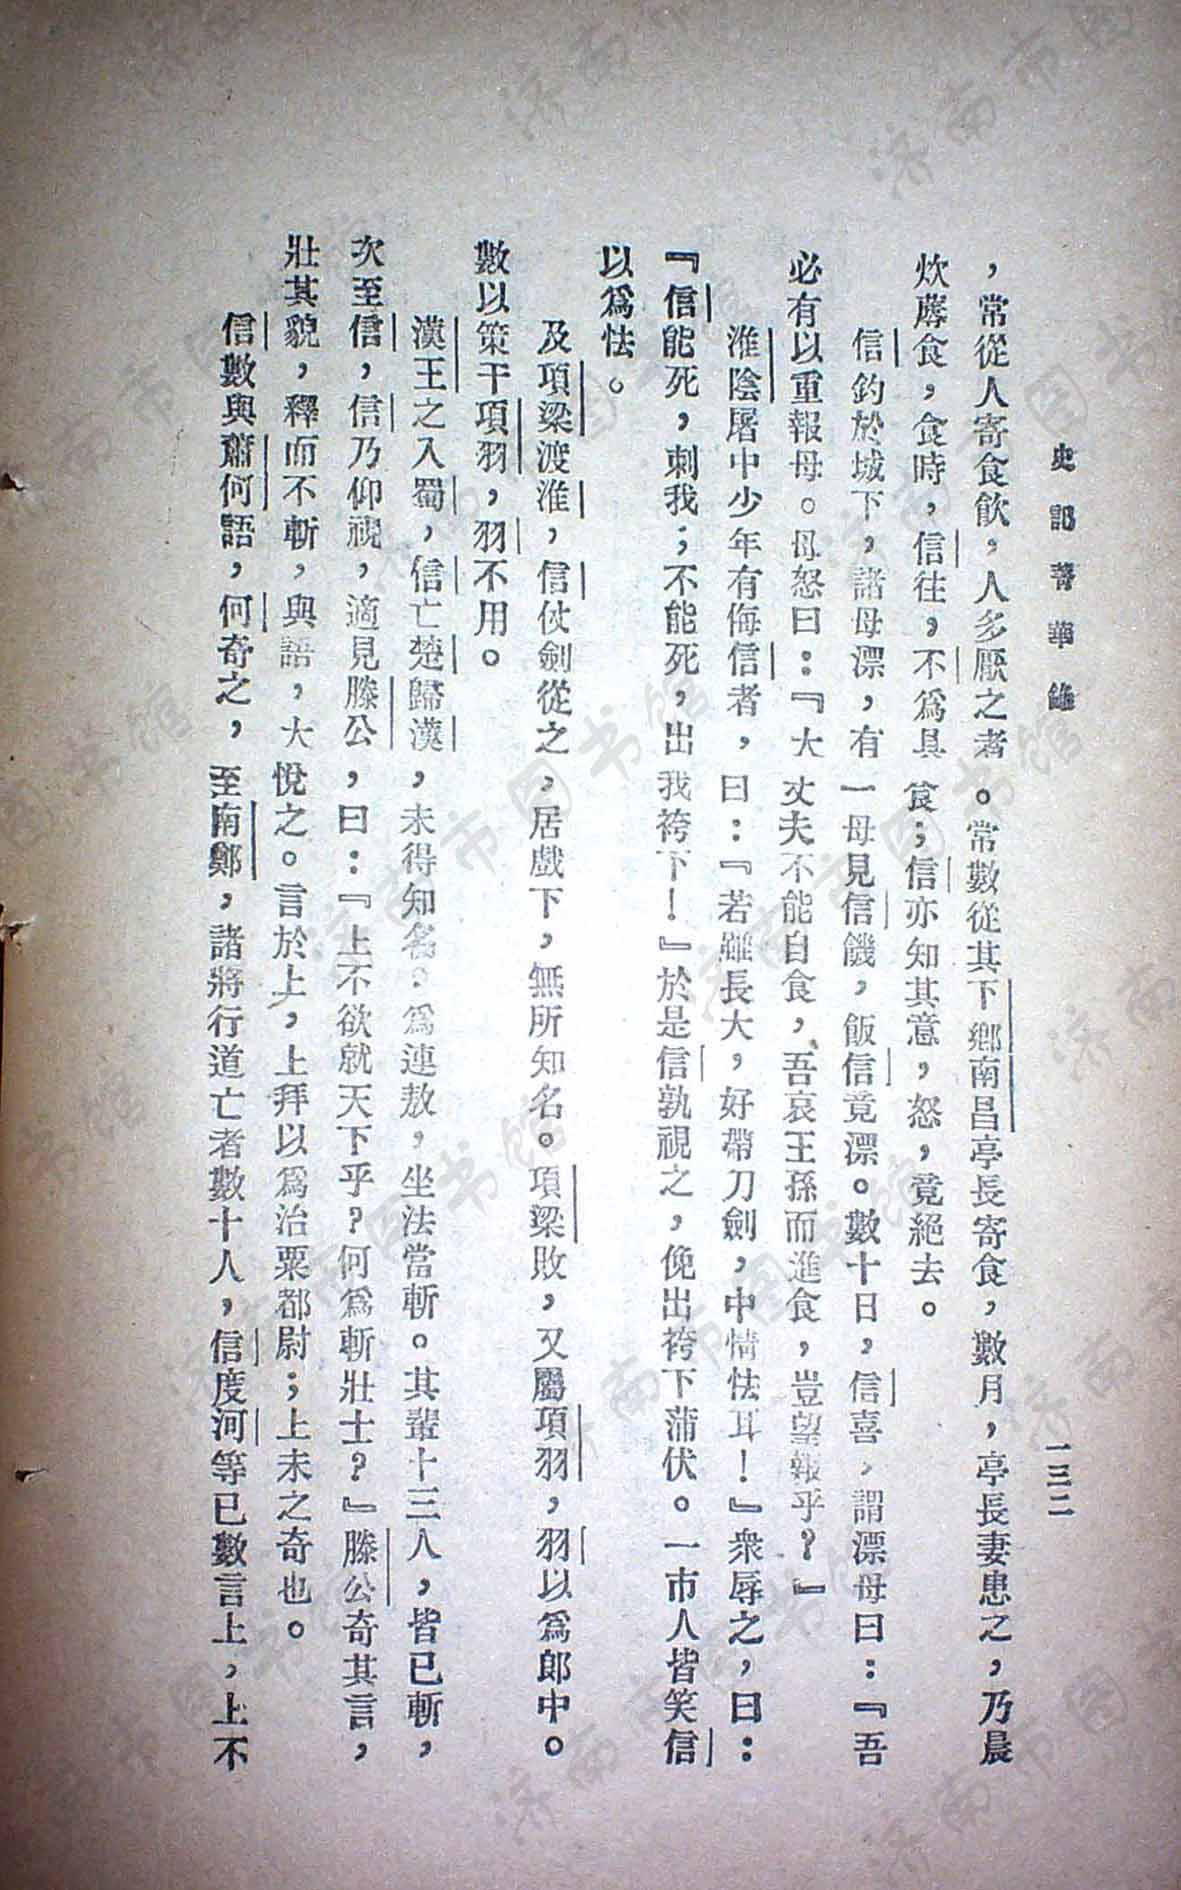 史記菁華錄
一三二
，常從人寄食飲，人多厭之者。常數從其下鄉南昌亭長寄食，數月，亭長妻患之，乃晨
炊蓐食，食時，信往，不爲具食；信亦知其意，怒，竟絕去。
信釣於城下，諸母漂，有一母見信饑，飯信竟漂。數十日，信喜，謂漂母曰：『吾
必有以重報母。母怒曰：『大丈夫不能自食，吾哀王孫而進食，豈望報乎？』
淮陰屠中少年有侮信者，曰：『若雖長大，好帶刀劍，中情怯耳！』衆辱之，曰：
『信能死，刺我；不能死，出我袴下！』於是信孰視之，俛出袴下蒲伏。一市人皆笑信
以爲怯。
及項梁渡淮，信仗劍從之，居戲下，無所知名。項梁敗，又屬項羽，羽以爲郎中。
數以策干項羽，羽不用。
漢王之入蜀，信亡楚歸漢，未得知名，爲連敖，坐法當斬。其輩十三人，皆已斬，
次至信，信乃仰視，適見滕公，曰：『上不欲就天下乎？何爲斬壯士？』滕公奇其言，
壯其貌，釋而不斬，與語，大悅之。言於上，上拜以爲治粟都尉；上未之奇也。
信數與蕭何語，何奇之，至南鄭，諸將行道亡者數十人，信度河等已數言上，上不
济南市图书馆